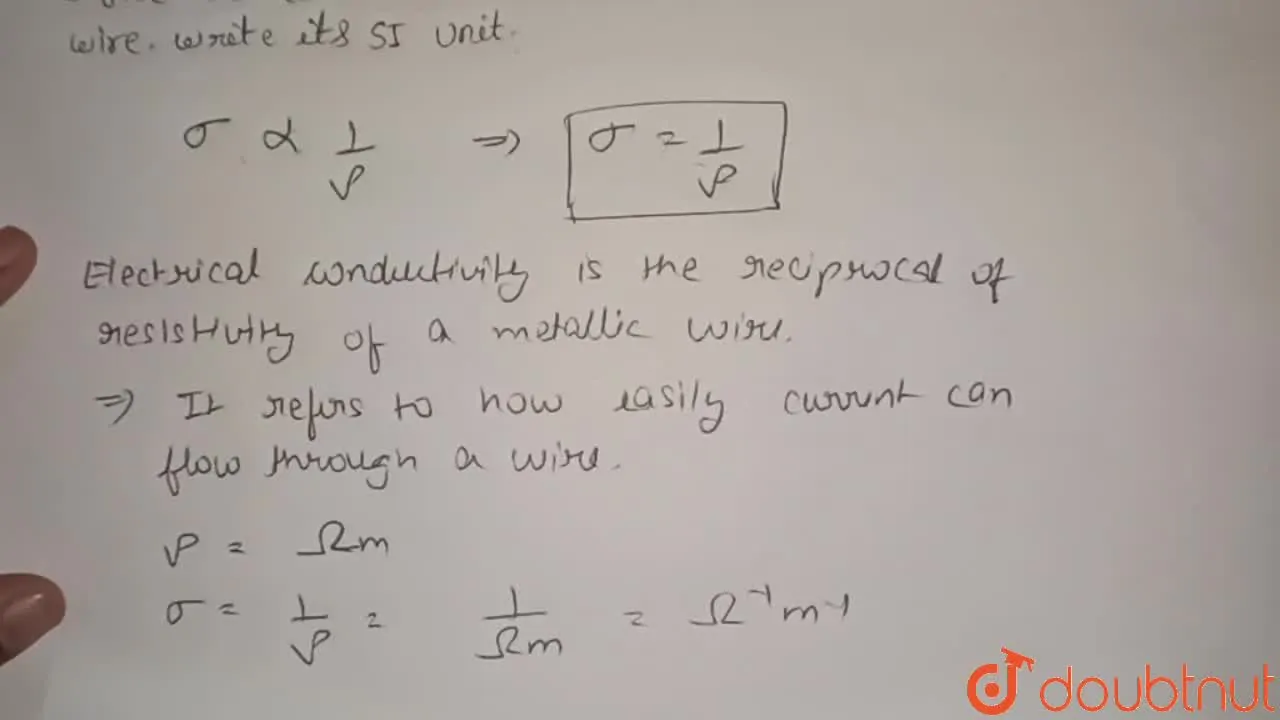 wire. write its SI unit.
σ ∝ 1/ρ ⇒ σ = 1/ρ
Electrical conductivity is the reciprocal of
resistivity of a metallic wire.
⇒ It refers to how easily current can
flow through a wire.
ρ = Ωm
σ = 1/ρ = 1/Ωm = Ω⁻¹m⁻¹
doubtnut